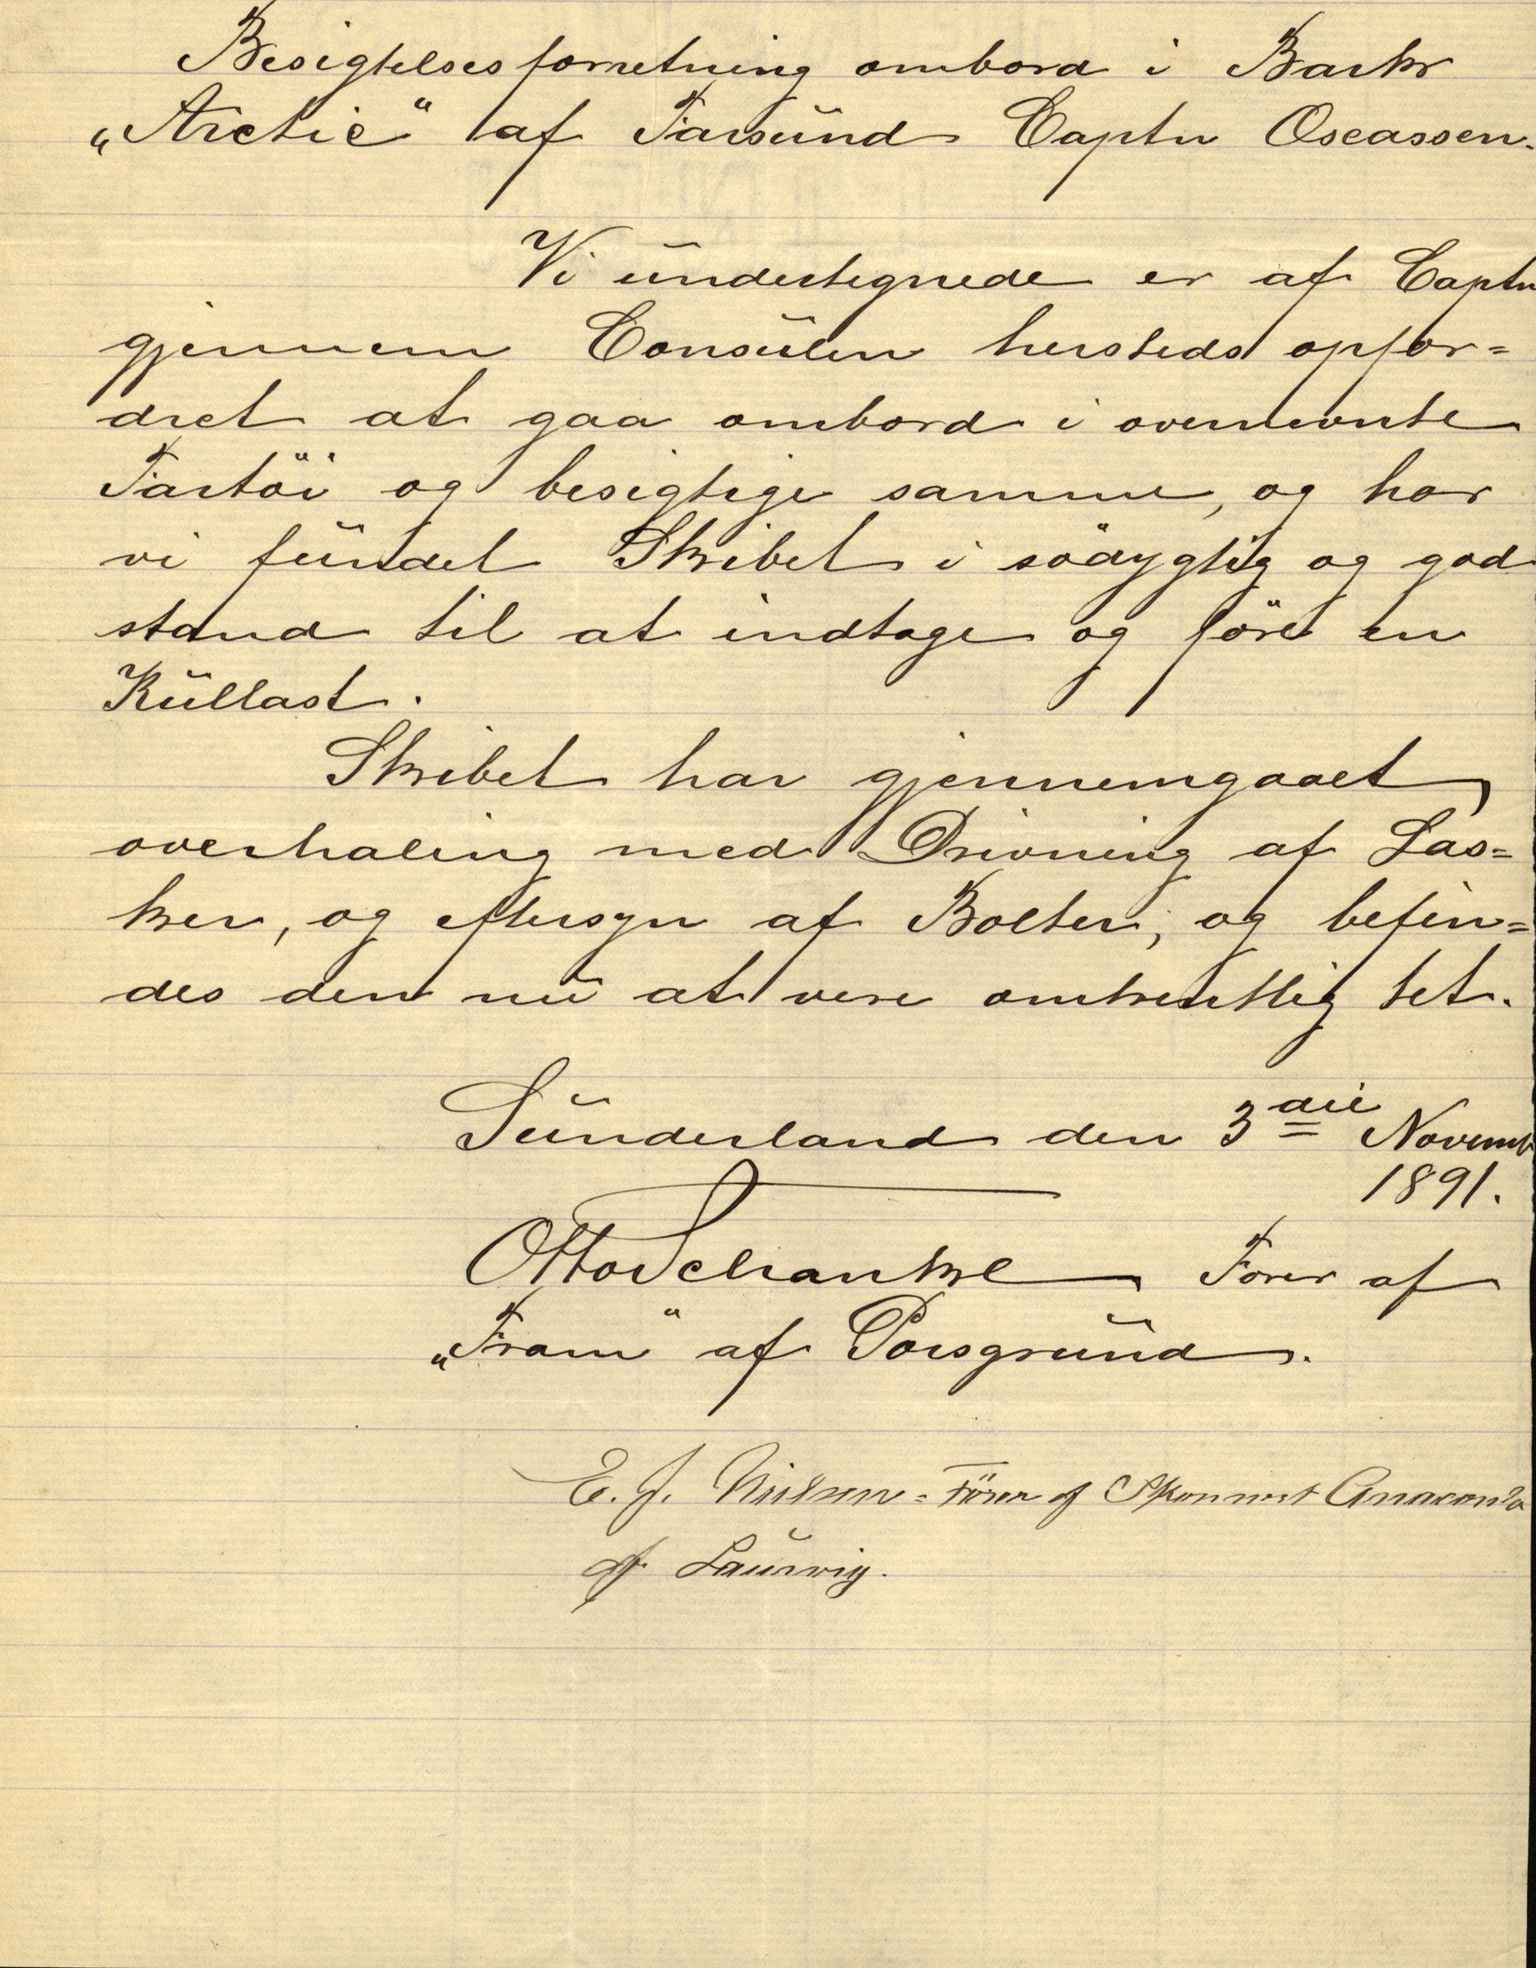 Besigtelsesforretning ombord i Barkr
„Arctic“ af Farsund Captn Oseassen.
Vi undertegnede er af Captn
gjennem Consulen hersteds opfor=
dret at gaa ombord i ovennevnte
Fartöi og besigtige samme, og har
vi fundet Skibet i södygtig og god
stand til at indtage og före en
Kullast.
Skibet har gjennemgaaet
overhaling med Drivning af Las=
ker, og eftersyn af Bolter, og befin=
des den nu at vere omhentlig tet.
Sunderland den 3die Novemb
1891.
Otto Schanke Förer af
„Fram“ af Porsgrund.
E. J. Nielsen = Förer af Skonnert Anaconda
af Laurvig.